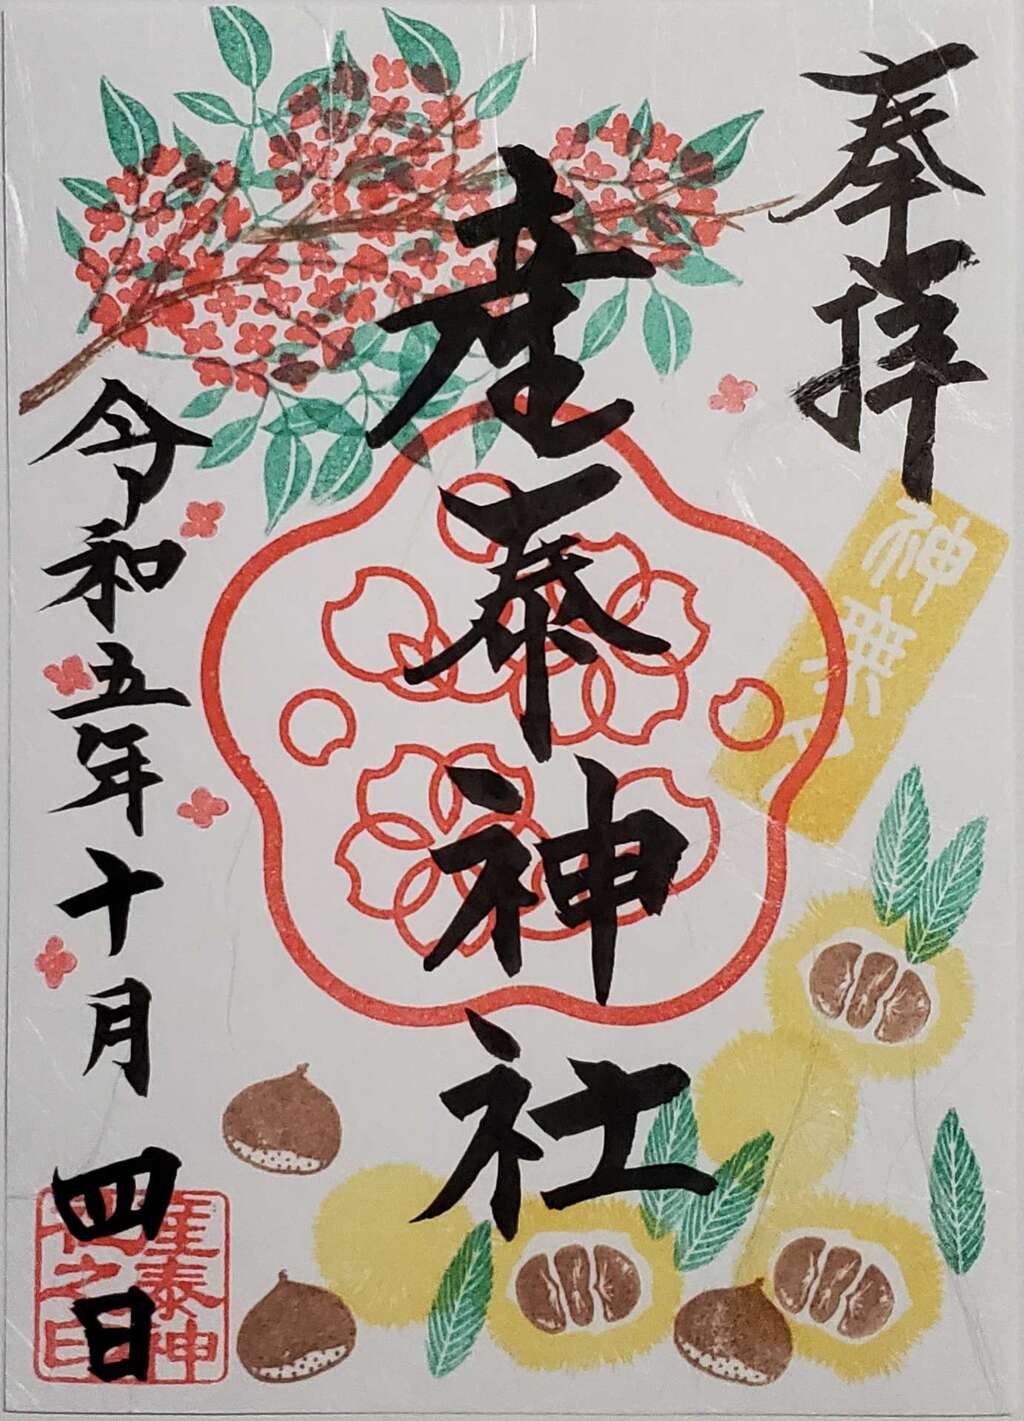 奉拝
神無月
産泰神社
令和五年十月四日
産泰神
社之印